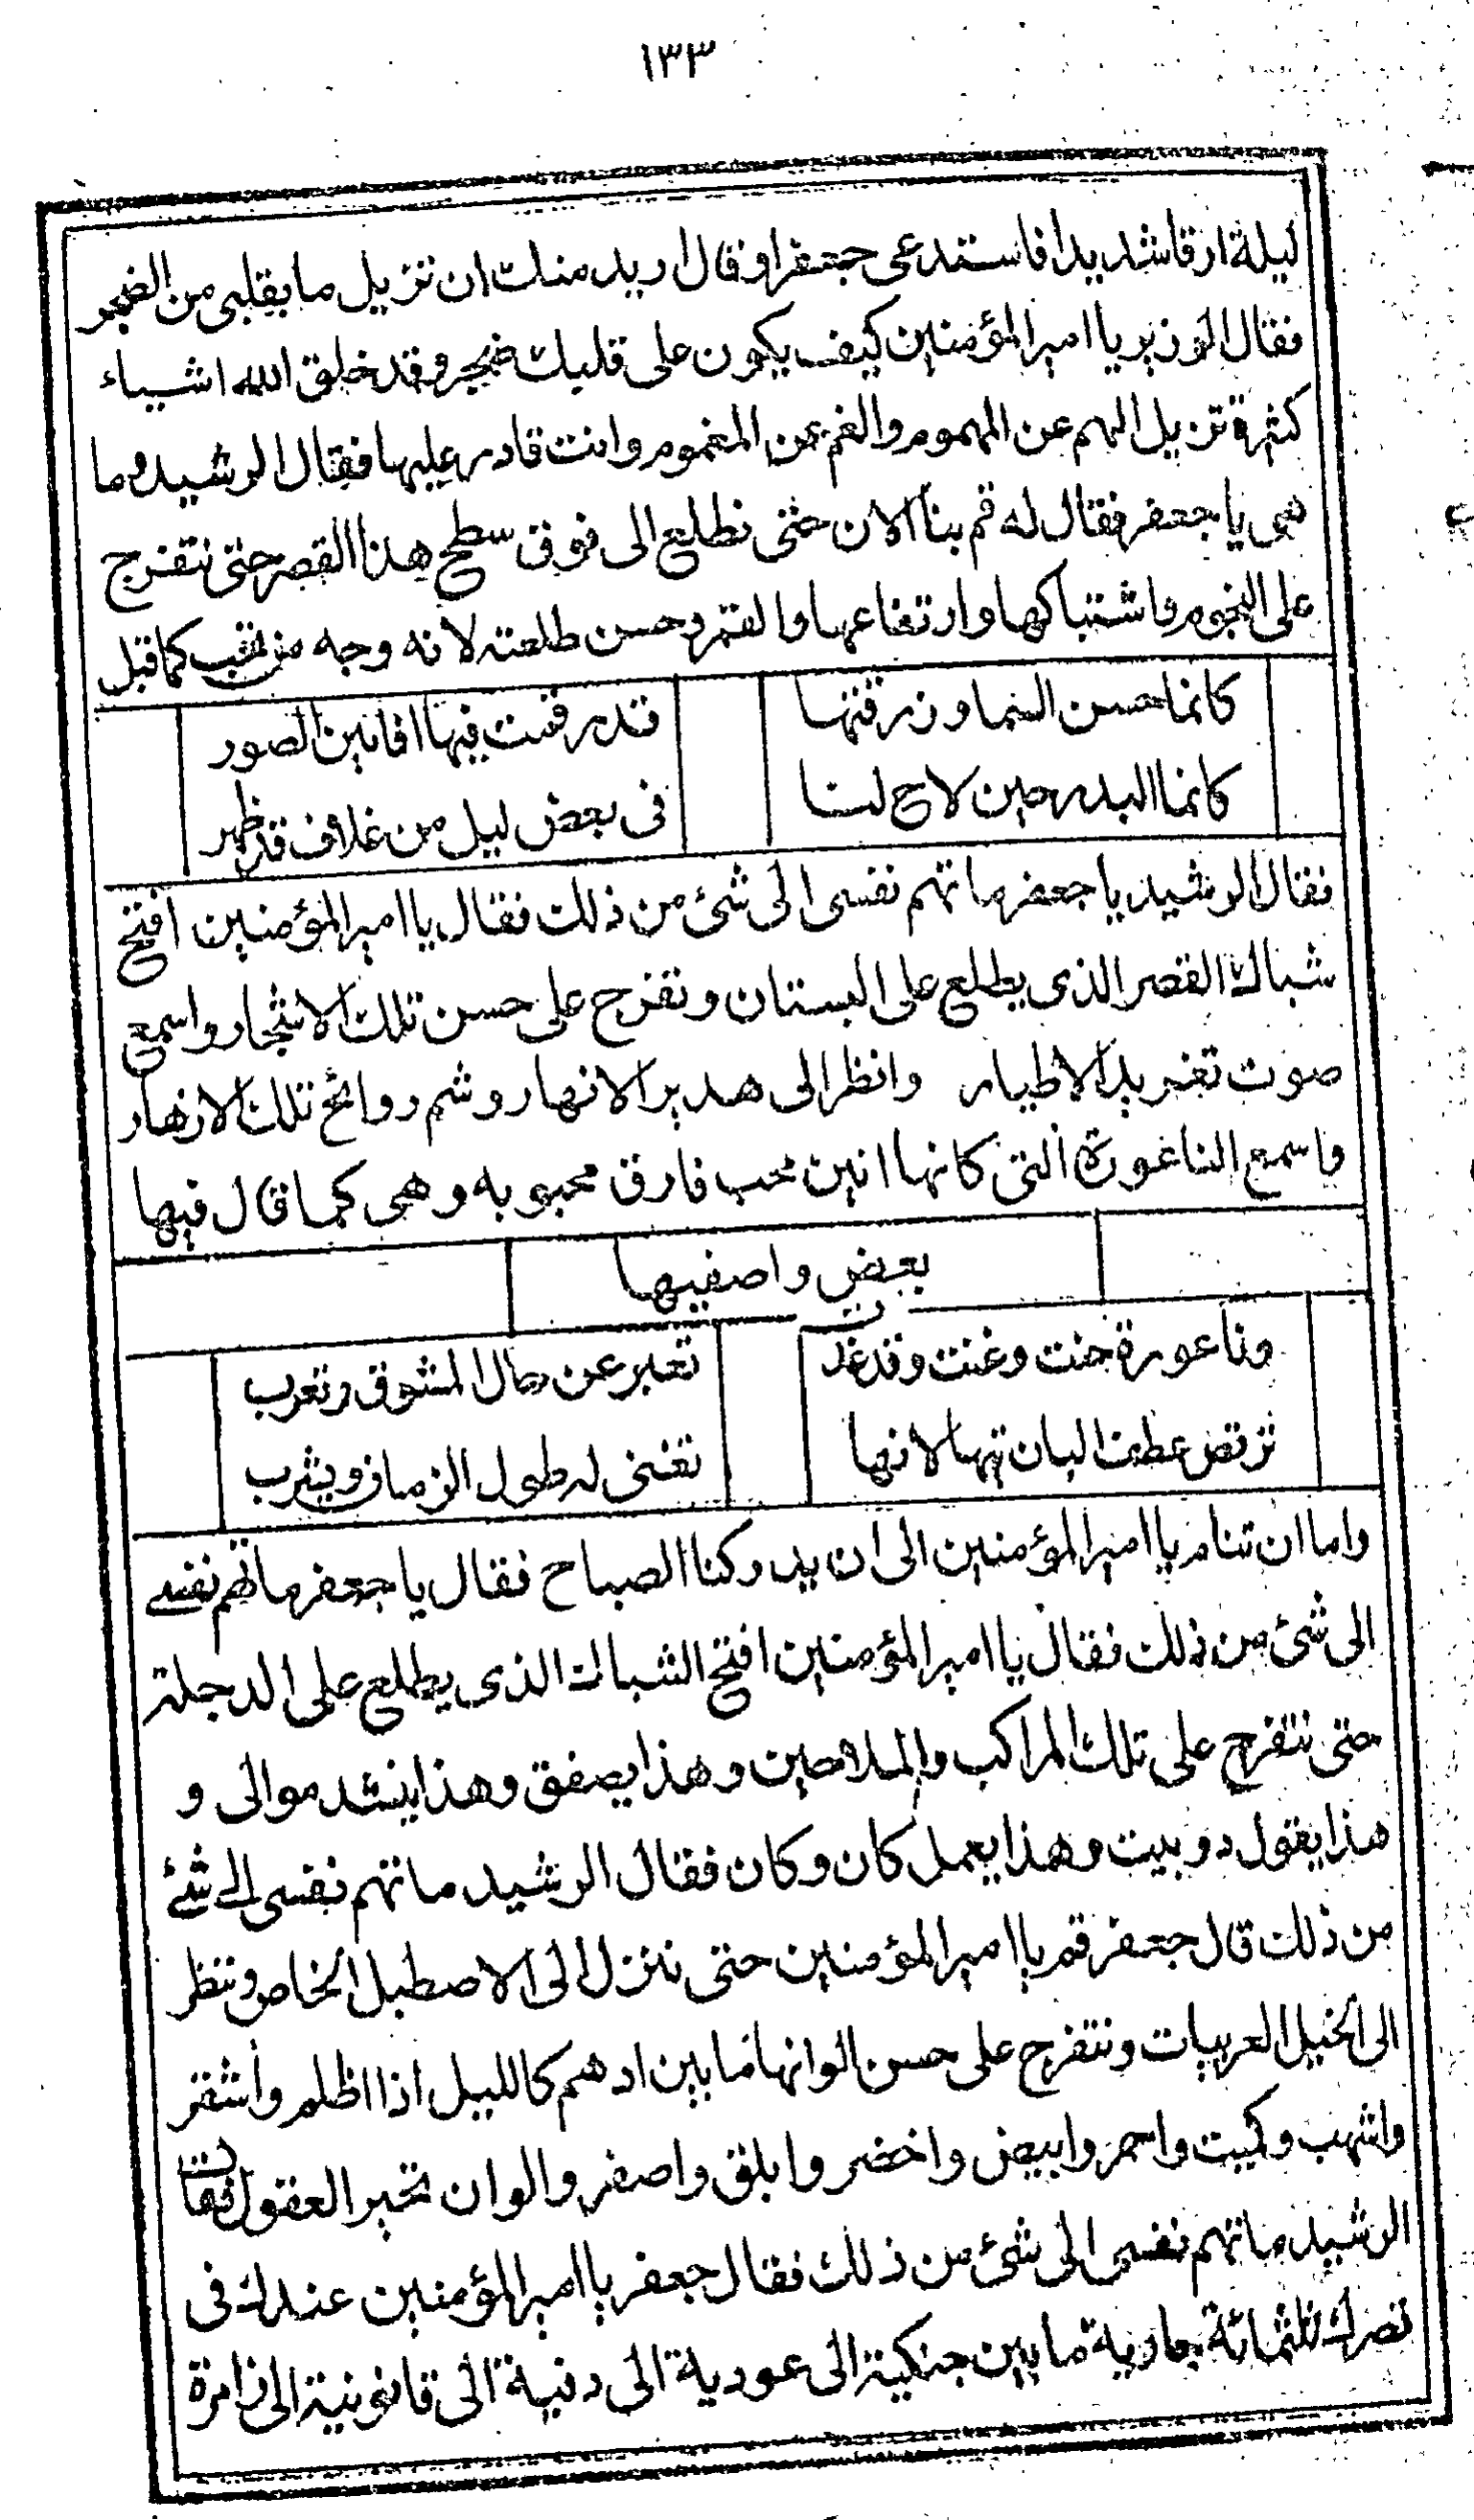 ١٣٣
ليلة ارقا شديدا فاستدعى جعفرا وقال اريد منك ان تزيل ما بقلبى من الضجر
فقال الوزير يا امير المؤمنين كيف يكون على قلبك ضجر وقد خلق الله اشياء
كثيرة تزيل الهم عن المهموم والغم عن المغموم وانت قادر عليها فقال الرشيد وما
هى يا جعفر فقال له قم بنا الان حتى نطلع الى فوق سطح هذا القصر حتى نتفرج
على النجوم واشتباكها وارتفاعها والقمر وحسن طلعته لانه وجه من نحب كما قيل
كانما حسن السما وزرقتها قد رقمت فيها افانين الصور
كانما البدر حين لاح لنا فى بعض ليل من غلاف قد ظهر
فقال الرشيد يا جعفر ما تهم نفسى الى شئ من ذلك فقال يا امير المؤمنين افتح
شباك القصر الذى يطلع على البستان وتفرج على حسن تلك الاشجار واسمع
صوت تغريد الاطيار وانظر الى هدير الانهار وشم روائح تلك الازهار
واسمع الناغورة التى كانها انين محب فارق محبوبه وهى كما قال فيها
بعض واصفيها
وناعورة حنت وغنت وقد غدت تعبر عن حال المشوق وتعرب
ترقص عطف البان تيها لانها تغنى له طول الزمان ويشرب
واما ان تنام يا امير المؤمنين الى ان يدركنا الصباح فقال يا جعفر ما تهم نفسى
الى شئ من ذلك فقال يا امير المؤمنين افتح الشباك الذى يطلع على الدجلة
حتى نتفرج على تلك المراكب والملاحين وهذا يصفق وهذا ينشد موالى و
هذا يقول دوبيت وهذا يعمل كان وكان فقال الرشيد ما تهم نفسى الى شئ
من ذلك قال جعفر قم يا امير المؤمنين حتى ننزل الى الاصطبل الخاص وننظر
الى الخيل العربيات ونتفرج على حسن الوانها ما بين ادهم كالليل اذا اظلم واشقر
واشهب وكميت واحمر وابيض واخضر وابلق واصفر والوان تحير العقول فقال
الرشيد ما تهم نفسى الى شئ من ذلك فقال جعفر يا امير المؤمنين عندك فى
قصرك ثلثمائة جارية ما بين جنكية الى عودية الى دفية الى قانونية الى زامرة